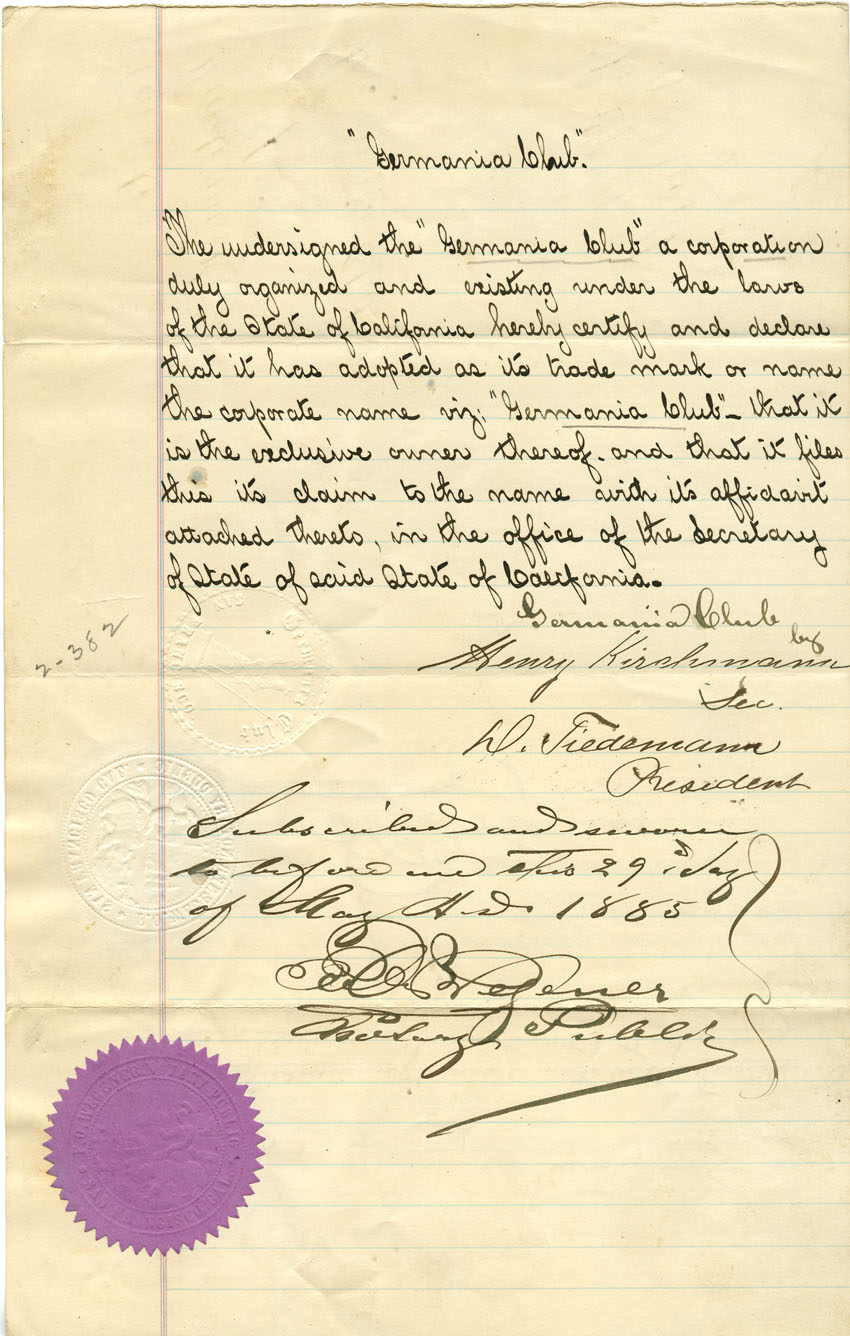 "Germania Club".
The undersigned the "Germania Club" a corporation
duly organized and existing under the laws
of the State of California hereby certify and declare
that it has adopted as its trade mark or name
the corporate name viz; "Germania Club" - that it
is the exclusive owner thereof. and that it files
this its claim to the name with its affidavit
attached thereto, in the office of the Secretary
of State of said State of California.
Germania Club
by
2-382
Henry Kirchmann
Sec.
D. Tiedemann
President
Subscribed and sworn
to before me this 29th day
of May A.D. 1885
Wegener
Notary Public